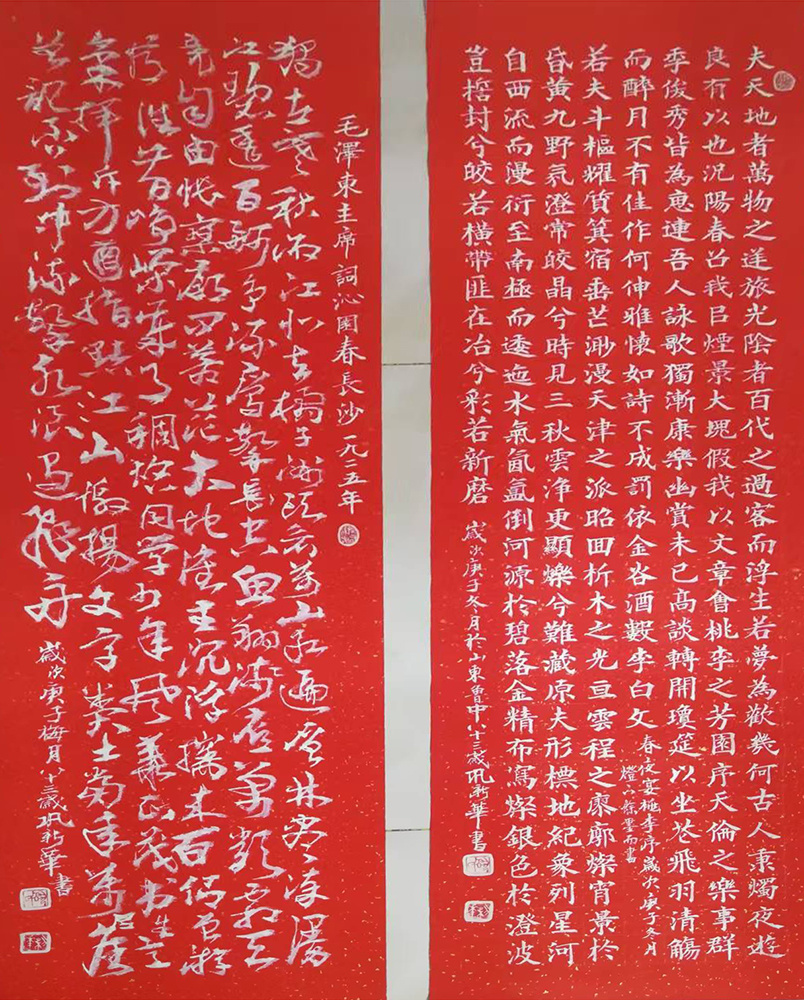 夫天地者萬物之逆旅光陰者百代之過客而浮生若夢為歡幾何古人秉燭夜遊
良有以也況陽春召我㠯煙景大塊假我以文章會桃李之芳園序天倫之樂事群
季俊秀皆為惠連吾人詠歌獨漸康樂幽賞未已高談轉開瓊筵以坐花飛羽清觴
而醉月不有佳作何伸雅懷如詩不成罰依金谷酒數李白文
春夜宴桃李序歲次庚子冬月
燈下墨而書
若夫斗樞耀質箕宿垂芒渺漫天津之派昭回析木之光亘雲程之廖廓燦宵景於
昏黃九野氣澄常皎晶兮時見三秋雲淨更顯爍兮難藏原夫形標地紀象列星河
自西流而漫衍至南極而逶迤水氣氤氳倒河源於碧落金精布瀉燦銀色於澄波
豈捨封兮皎若橫帶匪在冶兮彩若新磨
歲次庚子冬月於山東魯中八十三歲巩新華書
毛澤東主席詞沁園春長沙一九二五年
獨立寒秋湘江北去橘子洲頭看萬山紅遍層林盡染漫
江碧透百舸爭流鷹擊長空魚翔淺底萬類霜天
竞自由悵寥廓問蒼茫大地誰主沉浮攜來百侶曾游
憶往昔崢嶸歲月稠恰同學少年風華正茂書生意
氣揮斥方遒指點江山激揚文字糞土當年萬戶侯
曾記否到中流擊水浪遏飛舟
歲次庚子梅月八十三歲巩新華書